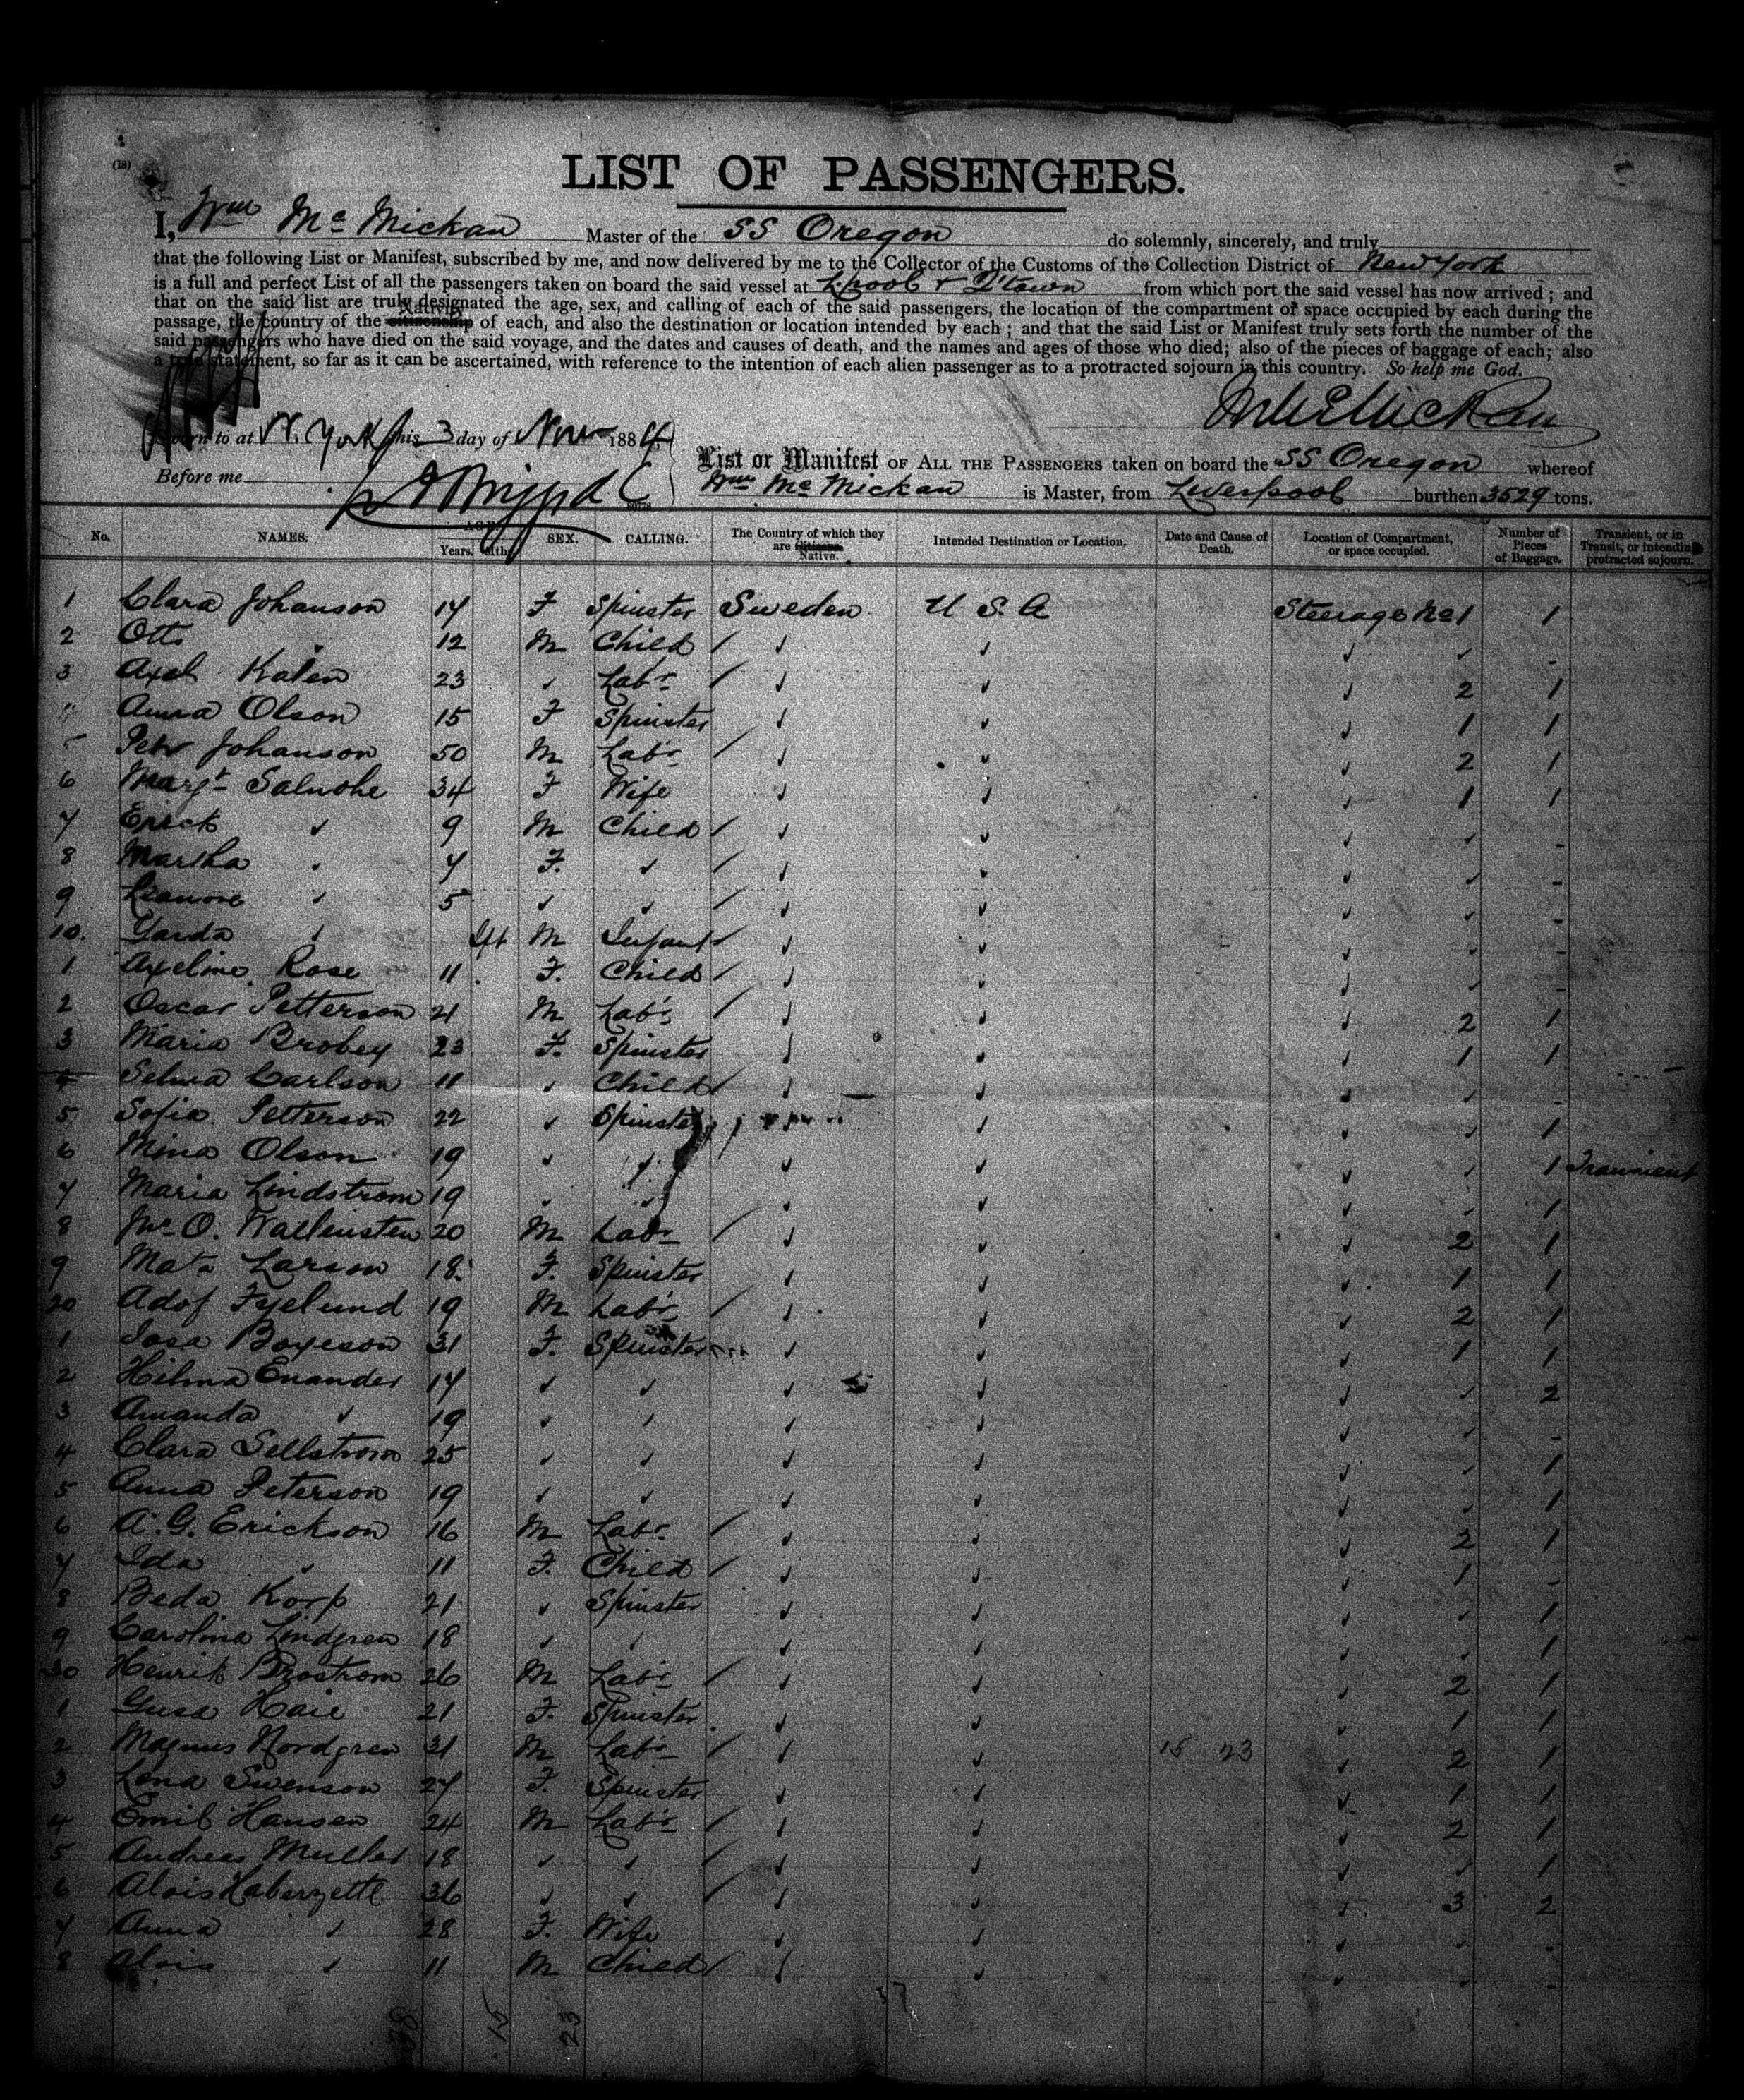 (18)
LIST OF PASSENGERS.
I, Wm McMickan Master of the SS Oregon do solemnly, sincerely, and truly
that the following List or Manifest, subscribed by me, and now delivered by me to the Collector of the Customs of the Collection District of New York
is a full and perfect List of all the passengers taken on board the said vessel at L'pool & Q'town from which port the said vessel has now arrived; and
that on the said list are truly designated the age, sex, and calling of each of the said passengers, the location of the compartment or space occupied by each during the
passage, the country of the citizenship Nativity of each, and also the destination or location intended by each; and that the said List or Manifest truly sets forth the number of the
said passengers who have died on the said voyage, and the dates and causes of death, and the names and ages of those who died; also of the pieces of baggage of each; also
a true statement, so far as it can be ascertained, with reference to the intention of each alien passenger as to a protracted sojourn in this country. So help me God.
Wm McMickan
Sworn to at N. York this 3 day of Nov 1884
Before me
List or Manifest OF ALL THE PASSENGERS taken on board the SS Oregon whereof
Wm McMickan is Master, from Liverpool burthen 3529 tons.
No. NAMES. AGE. Years. Mths. SEX. CALLING. The Country of which they are Citizens. Native. Intended Destination or Location. Date and Cause of Death. Location of Compartment, or space occupied. Number of Pieces of Baggage. Transient, or in Transit, or intending protracted sojourn.
1 Clara Johanson 17 F Spinster Sweden U S. A Steerage No 1 1
2 Otto " 12 M Child / ✓ ✓ ✓ ✓ -
3 Axel Kalen 23 ✓ Labr / ✓ ✓ ✓ 2 1
4 Anna Olson 15 F Spinster ✓ ✓ ✓ 1 1
5 Petr Johanson 50 M Labr / ✓ ✓ ✓ 2 1
6 Margt 34 F Wife ✓ ✓ ✓ 1 1
7 Erick ✓ 9 M Child / ✓ ✓ ✓ ✓ -
8 Martha ✓ 7 F. ✓ / ✓ ✓ ✓ ✓ -
9 Leanore ✓ 5 ✓ ✓ / ✓ ✓ ✓ ✓ -
10. Garda ✓ Ift M Infant / ✓ ✓ ✓ ✓ -
1 Axeline Rose 11 F. Child / ✓ ✓ ✓ ✓ -
2 Oscar Petterson 21 M Labr / ✓ ✓ ✓ 2 1
3 Maria Brobey 23 F. Spinster ✓ ✓ ✓ 1 1
4 Selma Carlson 11 ✓ Child / ✓ ✓ ✓ ✓ -
5 Sofia Petterson 22 ✓ Spinster ✓ ✓ ✓ 1
6 Mina Olson 19 ✓ ✓ ✓ ✓ ✓ ✓ 1 Transient
7 Maria Lindstrom 19 ✓ ✓ ✓ ✓ ✓ ✓ 1
8 O. Wallensten 20 M Labr / ✓ ✓ ✓ 2 1
9 Mata Larson 18 F. Spinster ✓ ✓ ✓ 1 1
20 Adof Fyelund 19 M Labr / ✓ ✓ ✓ 2 1
1 Boyeson 31 F. Spinster ✓ ✓ ✓ 1 1
2 Hilma Enander 17 ✓ ✓ ✓ ✓ ✓ ✓ 2
3 Amanda ✓ 19 ✓ ✓ ✓ ✓ ✓ ✓ -
4 Clara Sellstrom 25 ✓ ✓ ✓ ✓ ✓ ✓ 1
5 Anna Peterson 19 ✓ ✓ ✓ ✓ ✓ ✓ 1
6 A. G. Erickson 16 M Labr / ✓ ✓ ✓ 2 1
7 Ida ✓ 11 F. Child / ✓ ✓ ✓ 1 -
8 Beda Korp 21 ✓ Spinster ✓ ✓ ✓ ✓ 1
9 Carolina Lindgren 18 ✓ ✓ ✓ ✓ ✓ ✓ 1
30 Henrik Brostrom 26 M Labr / ✓ ✓ ✓ 2 1
1 Gusa Haie 21 F. Spinster ✓ ✓ ✓ 1 1
2 Magnus Nordgren 31 M Labr / ✓ ✓ 15 23 ✓ 2 1
3 Lena Swenson 27 F. Spinster ✓ ✓ ✓ 1 1
4 Emil Hansen 24 M Labr / ✓ ✓ ✓ 2 1
5 Andreas Muller 18 ✓ ✓ / ✓ ✓ ✓ ✓ 1
6 Alois Haberzettl 36 ✓ ✓ / ✓ ✓ ✓ 3 2
7 Anna ✓ 28 F. Wife ✓ ✓ ✓ ✓ -
8 Alois ✓ 11 M Child / ✓ ✓ ✓ ✓ -
38 15 23 37